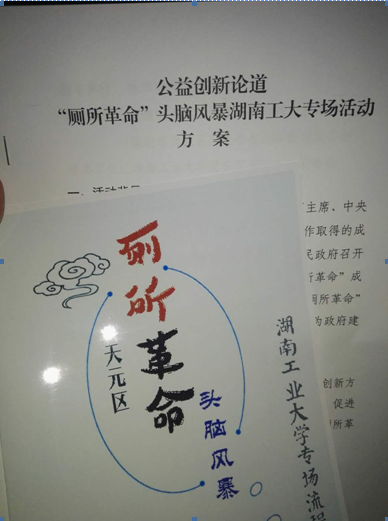 公益创新论道
“厕所革命”头脑风暴湖南工大专场活动
方 案
主席、中央
作取得的成
民政府召开
所革命”成
厕所革命”
为政府建
创新方
促进
所革
厕所
革命
天元区
头脑风暴
湖南工业大学专场流程